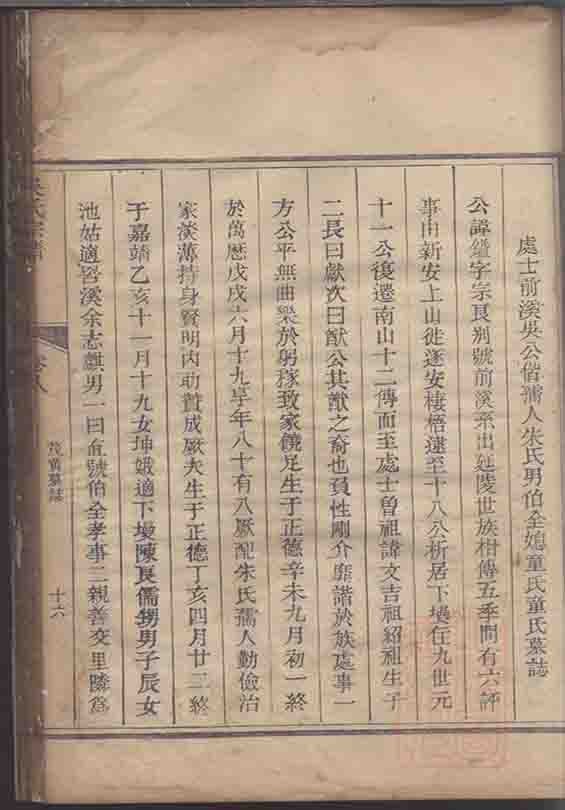 處士前溪吳公偕孺人朱氏男伯全媳童氏童氏墓誌
公諱 字宗長別號前溪系出延陵世族相傳五季間有六評
事由新安上山徙遂安棲梧逮至十八公析居下墁在九世元
十一公復遷南山十二傳而至處士曾祖諱文吉祖紹祖生子
二長曰獻次曰猷公其猷之裔也負性剛介靡諧於族處事一
方公平無曲樂於躬稼致家饒足生于正德辛未九月初一終
於萬曆戊戌六月十九享年八十有八厥配朱氏孺人勤儉治
家淡薄持身賢明內助贊成厥夫生于正德丁亥四月廿二終
于嘉靖乙亥十一月十九女坤娥適下墁陳良儒甥男子辰女
池姑適習溪余志麒男一曰 號伯全孝事二親善交里隣為
吳氏宗譜
卷八
茂 墓誌
十六